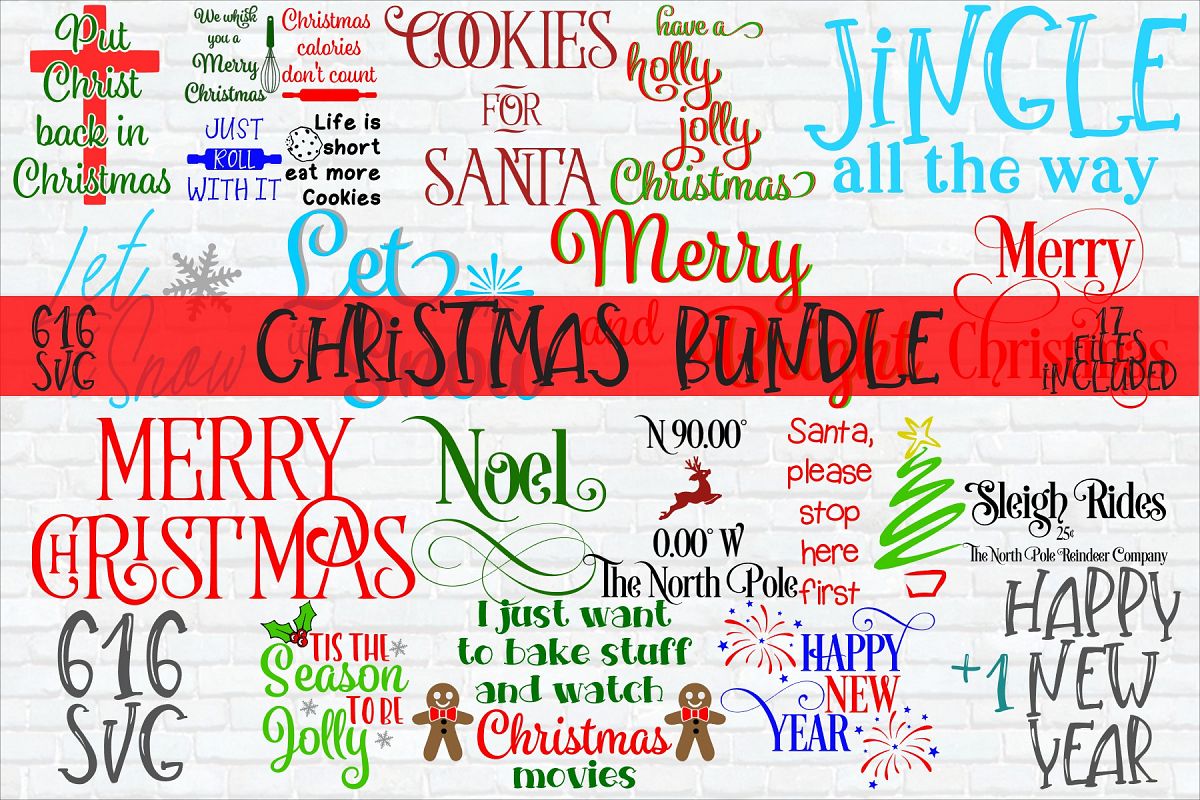 Put
Christ
back in
Christmas
We whisk
you a
Merry
Christmas
Christmas
calories
don't count
JUST
ROLL
WITH IT
Life is
short
eat more
Cookies
COOKIES
FOR
SANTA
have a
holly
jolly
Christmas
JiNGLE
all the way
Let
it
Snow
Let
it
Snow
Merry
and
Bright
Merry
Christmas
616
SVG
CHRiSTMAS BUNDLE
17
FiLES
iNCLUDED
MERRY
CHRISTMAS
Noel
N 90.00°
0.00° W
The North Pole
Santa,
please
stop
here
first
Sleigh Rides
25¢
The North Pole Reindeer Company
616
SVG
'TIS THE
Season
TO BE
Jolly
I just want
to bake stuff
and watch
Christmas
movies
HAPPY
NEW
YEAR
HAPPY
+1 NEW
YEAR